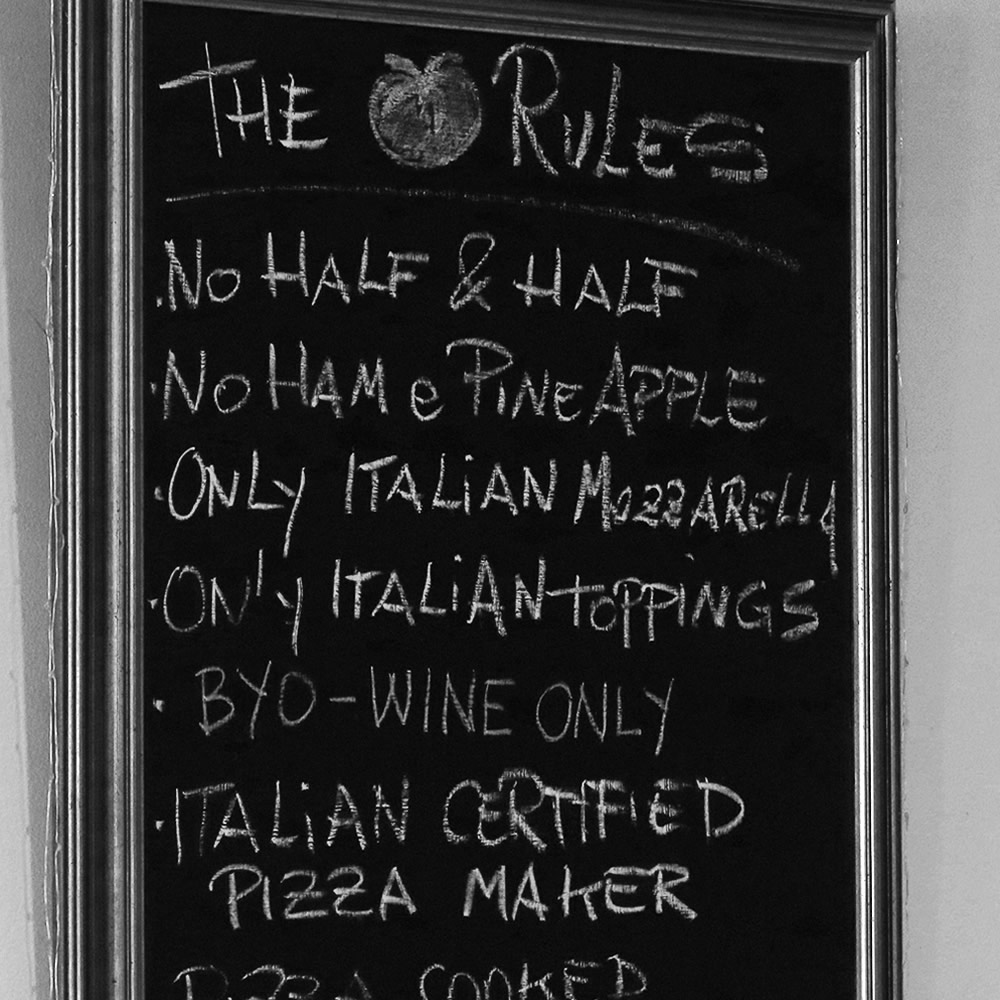 THE RULES
.No HALF & HALF
·No HAM e PINEAPPLE
·ONLY ITALIAN MOZZARELLA
·ONLY ITALIAN TOPPINGS
· BYO - WINE ONLY
·ITALIAN CERTIFIED
PIZZA MAKER
PIZZA COOKED